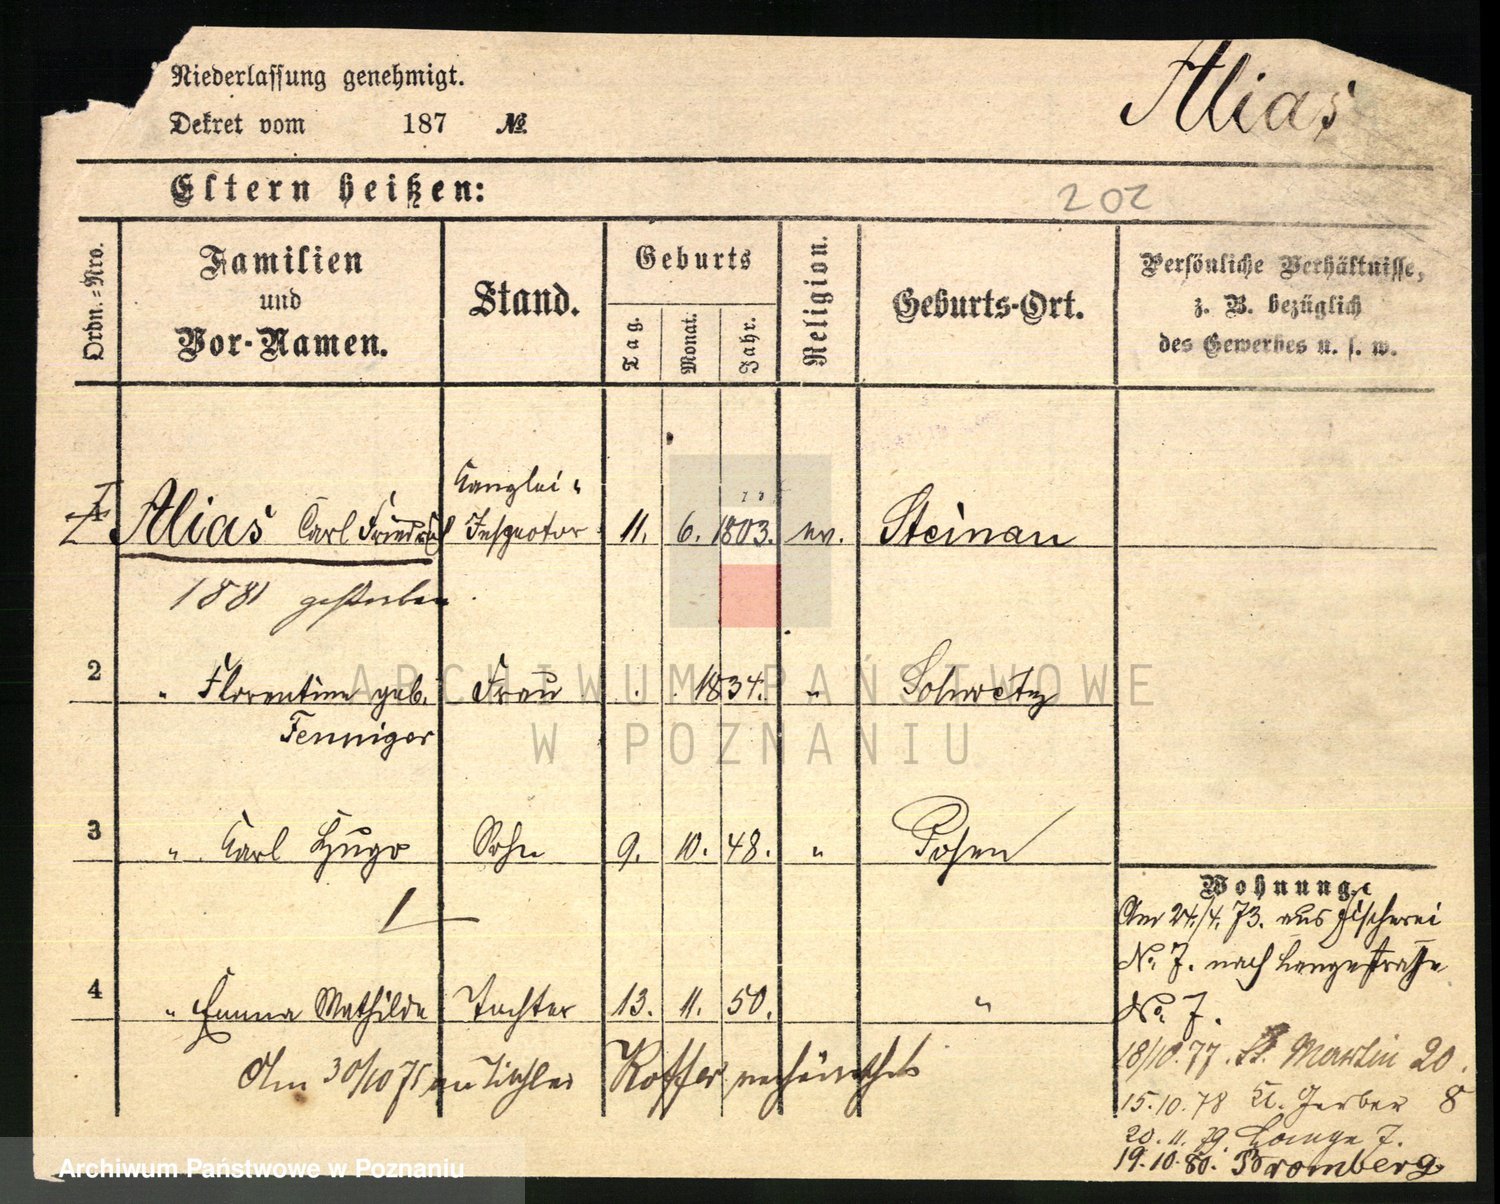 Niederlassung genehmigt.
Dekret vom 187 №
Alias
Eltern heißen:
202
Ordn.-Nro.
Familien
und
Vor-Namen.
Stand.
Geburts
Tag.
Monat.
Jahr.
Religion.
Geburts-Ort.
Persönliche Verhältnisse,
z. B. bezüglich
des Gewerbes u. s. w.
Alias Carl Friedrich Canzlei-Inspector 11. 6. 1803. ev. Steinau
1881 gestorben
2 " Florentine geb. Frau . . 1834. " Schwetz
Fenniger
3 " Carl Hugo Sohn 9. 10. 48. " Posen
4 " Emma Mathilde Tochter 13. 11. 50. "
Am 30/10 75 an Tischler Koffer verheirathet
Wohnung.
Am 24./4. 73. aus Fischerei
No. 7. nach Langestraße
No. 7.
18/10. 77. St. Martin 20.
15.10.78 Kl. Gerber 8
20.11.79 Lange 7.
19.10.80. Bromberg
ARCHIWUM PAŃSTWOWE
W POZNANIU
Archiwum Państwowe w Poznaniu